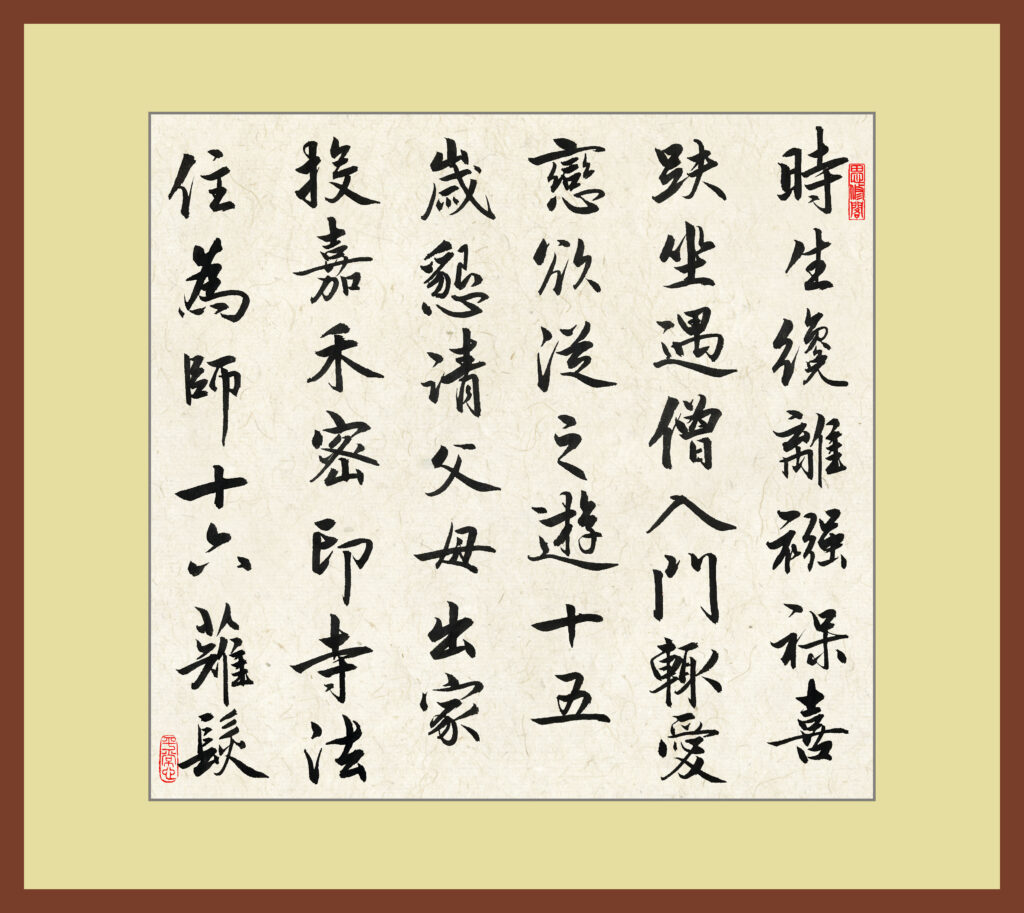 思修閣
時生纔離襁褓喜
趺坐遇僧入門輒愛
戀欲從之遊十五
歲懇請父母出家
投嘉禾密印寺法
住為師十六薙髮
平常心